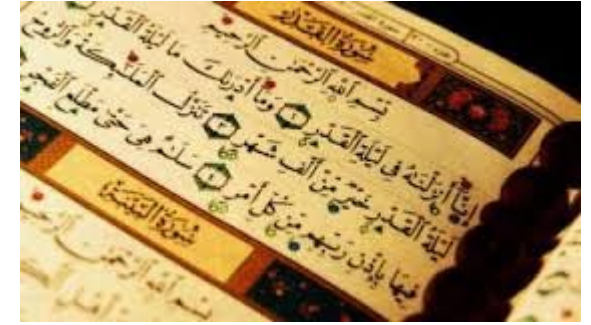 سورة القدر
بِسْمِ اللَّهِ الرَّحْمَٰنِ الرَّحِيمِ
إِنَّا أَنزَلْنَٰهُ فِى لَيْلَةِ ٱلْقَدْرِ ۝١ وَمَآ أَدْرَىٰكَ مَا لَيْلَةُ ٱلْقَدْرِ
لَيْلَةُ ٱلْقَدْرِ خَيْرٌ مِّنْ أَلْفِ شَهْرٍ ۝٣ تَنَزَّلُ ٱلْمَلَٰٓئِكَةُ وَٱلرُّوحُ
فِيهَا بِإِذْنِ رَبِّهِم مِّن كُلِّ أَمْرٍ ۝٤ سَلَٰمٌ هِىَ حَتَّىٰ مَطْلَعِ ٱلْفَجْرِ
سورة البينة
بِسْمِ اللَّهِ الرَّحْمَٰنِ الرَّحِيمِ